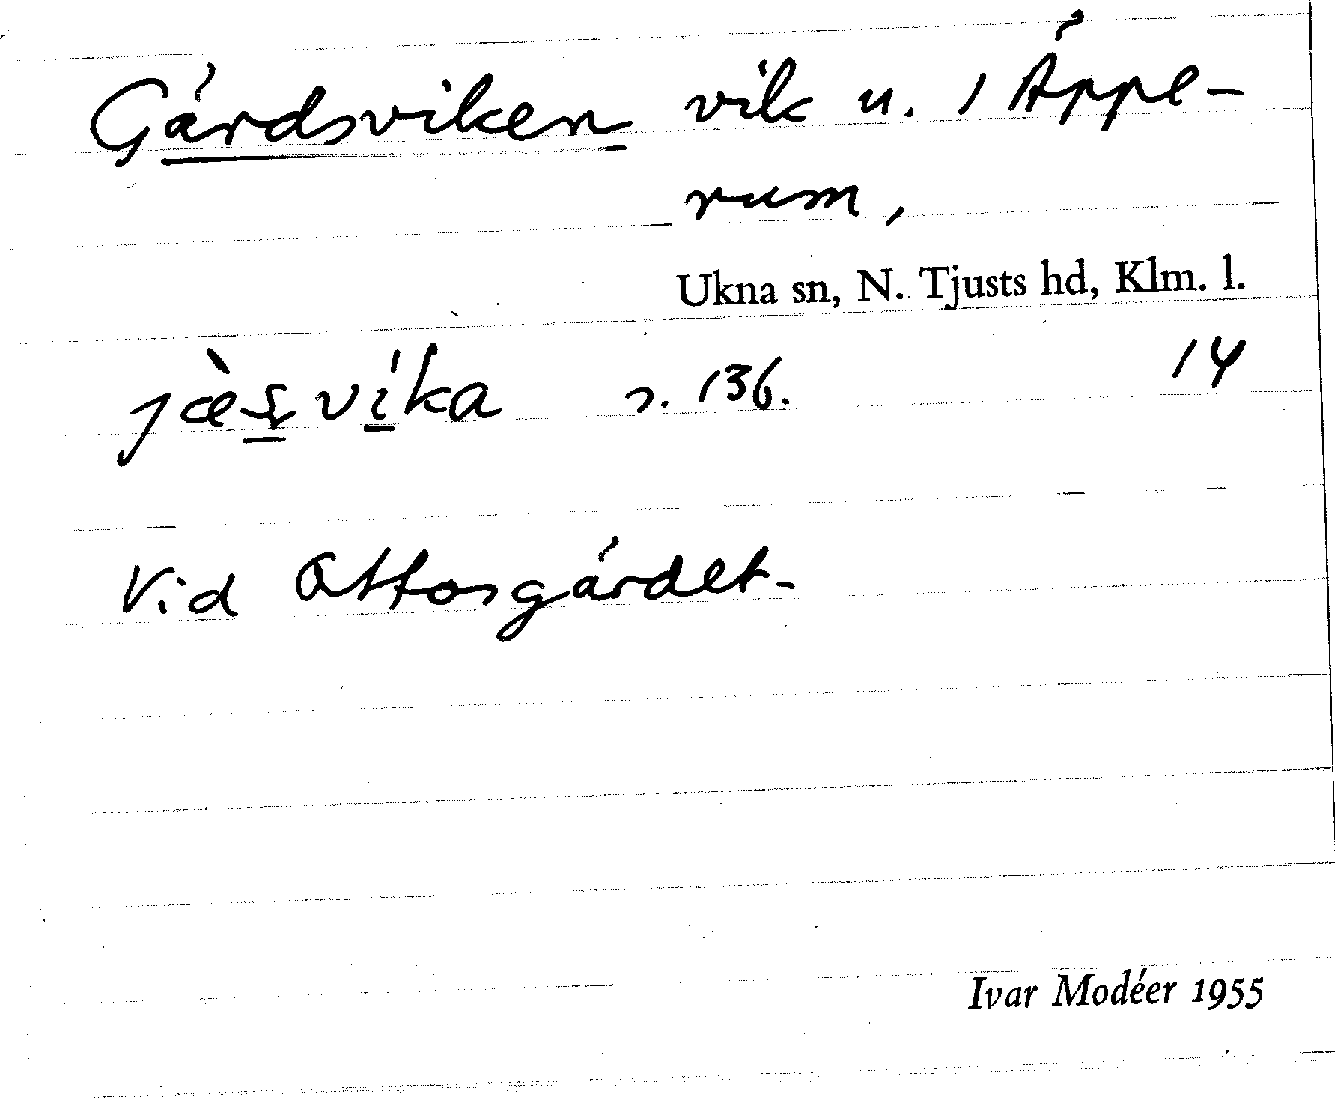 Gärdsviken vik u. 1 Äppe-
rum,
Ukna sn, N. Tjusts hd, Klm. l.
jæ̀ʂvíka s. 136. 14
Vid Ottosgärdet-
Ivar Modéer 1955